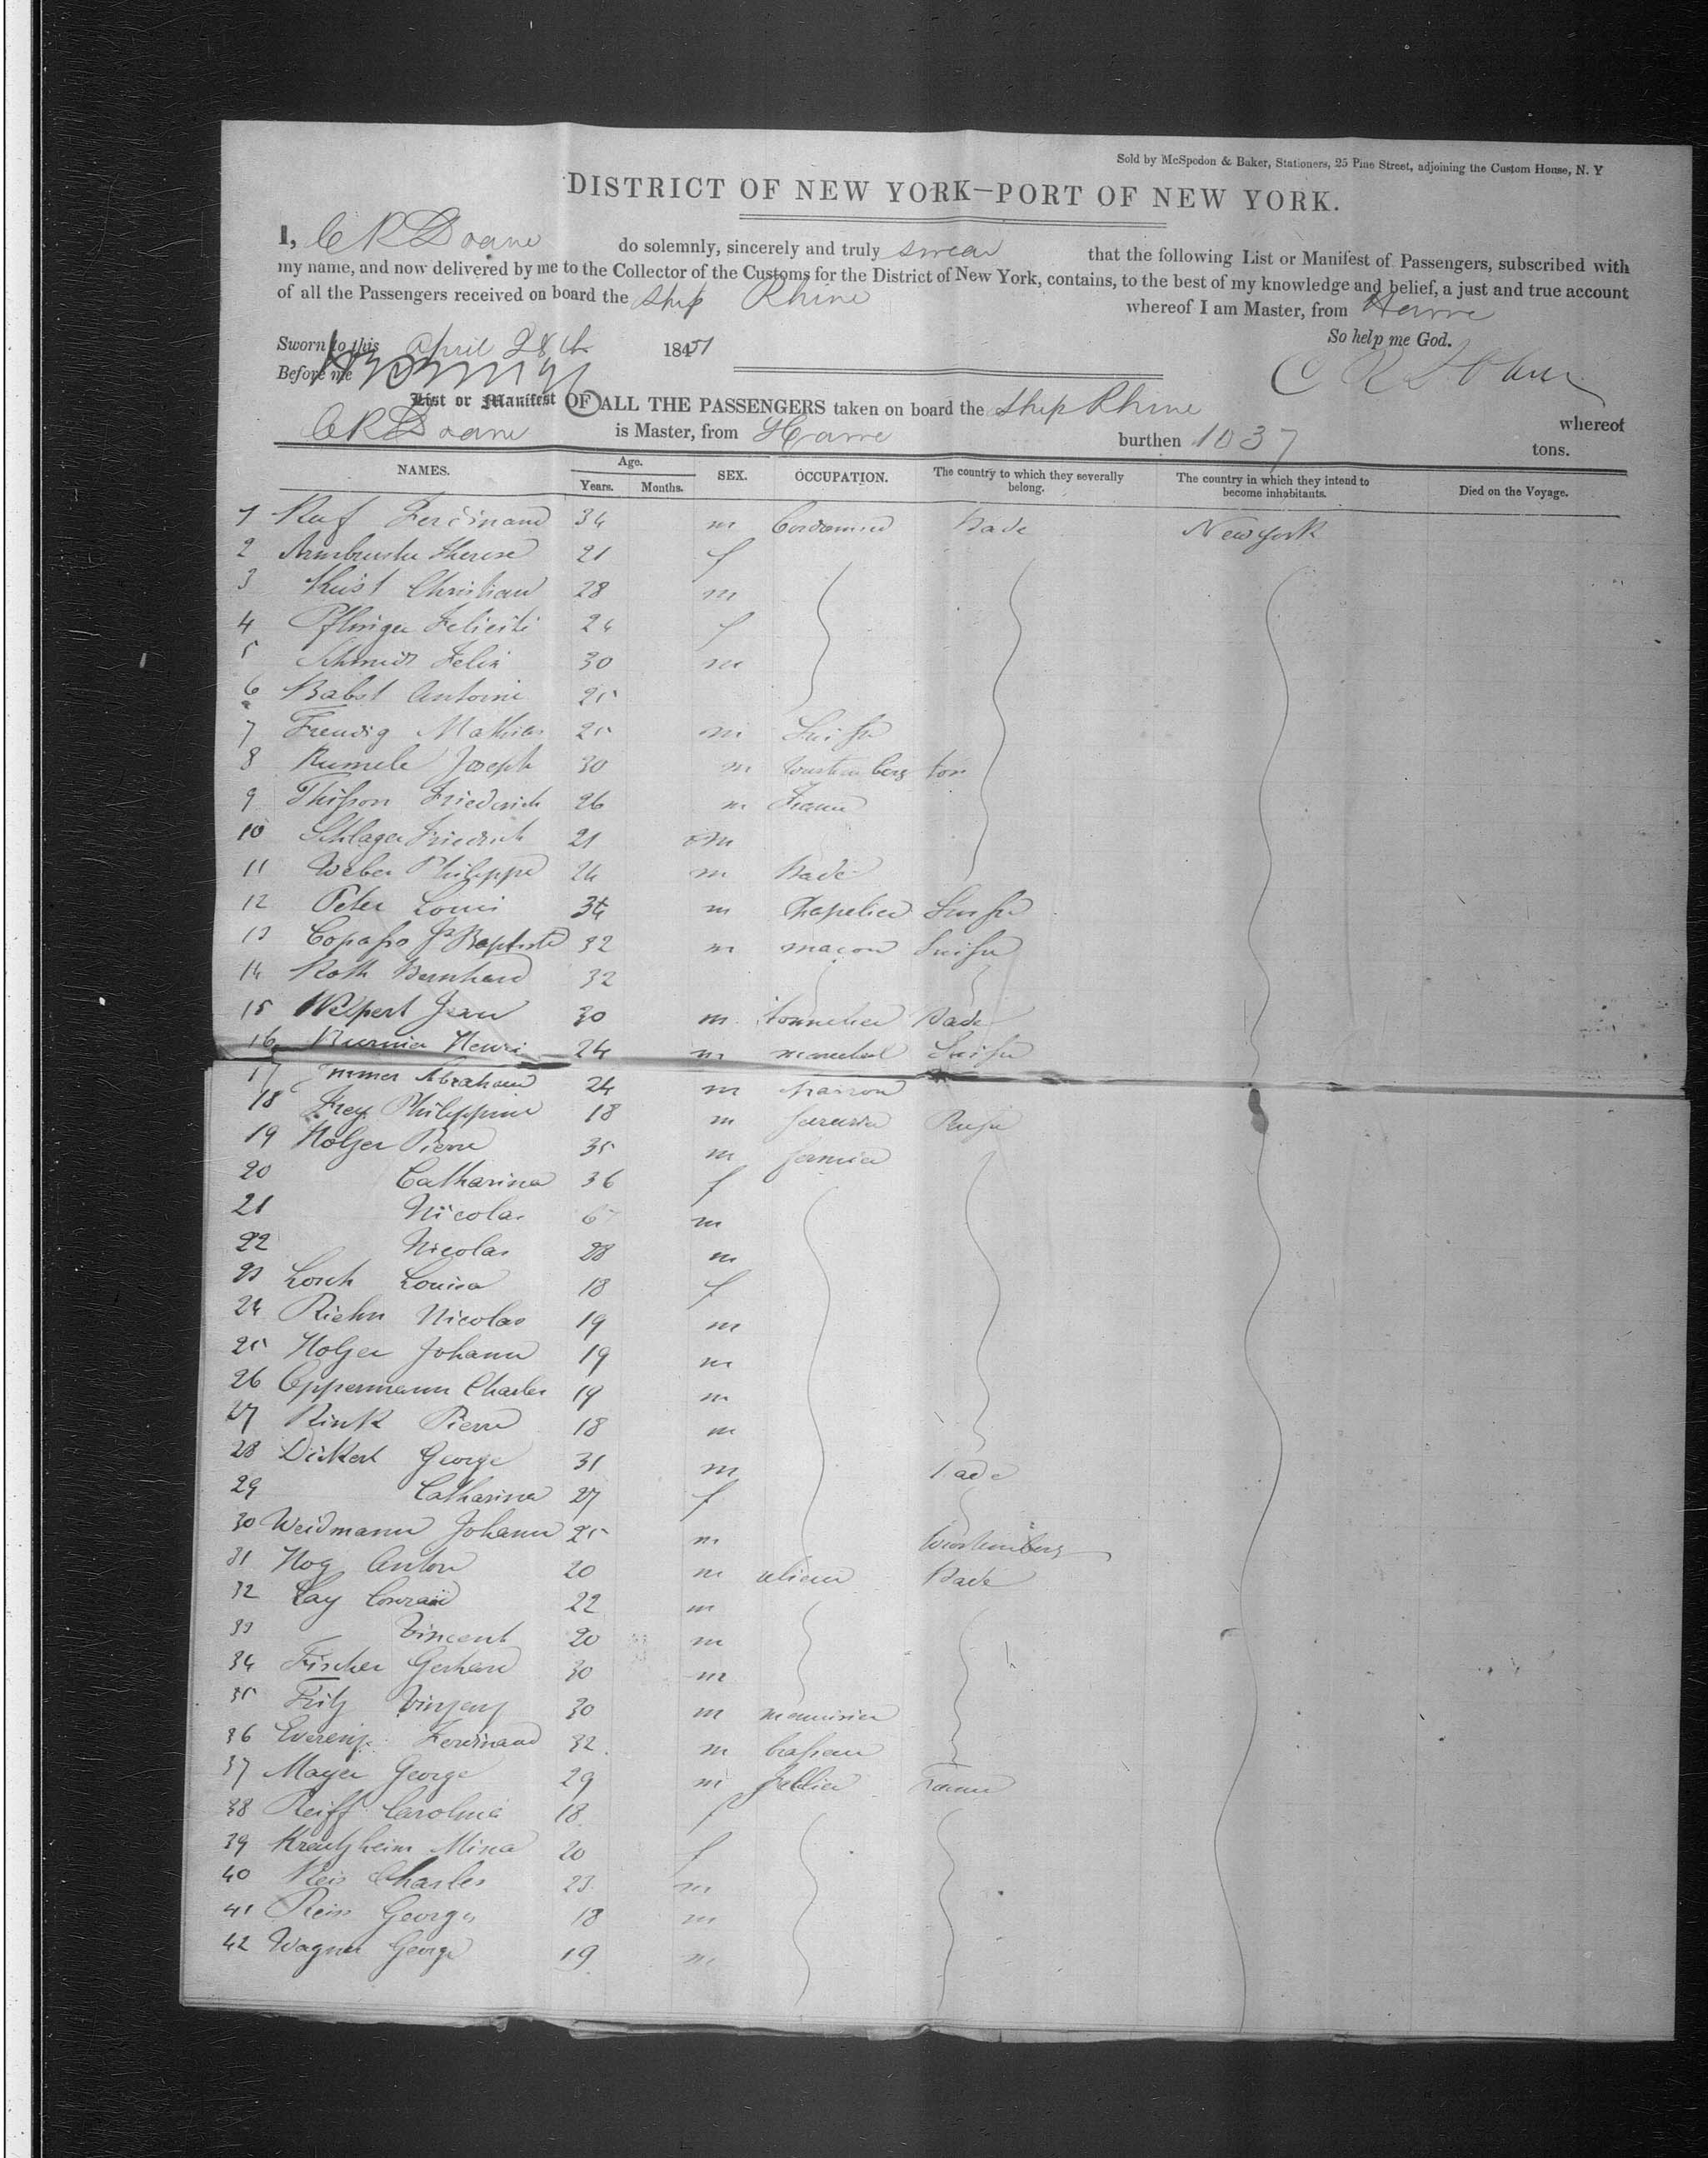 Sold by McSpedon & Baker, Stationers, 25 Pine Street, adjoining the Custom House, N. Y
DISTRICT OF NEW YORK—PORT OF NEW YORK.
I, C R Doane do solemnly, sincerely and truly swear that the following List or Manifest of Passengers, subscribed with
my name, and now delivered by me to the Collector of the Customs for the District of New York, contains, to the best of my knowledge and belief, a just and true account
of all the Passengers received on board the Ship Rhine whereof I am Master, from Havre
Sworn to this April 28th 1851 So help me God.
Before me
List or Manifest OF ALL THE PASSENGERS taken on board the Ship Rhine whereof
C R Doane is Master, from Havre burthen 1037 tons.
NAMES. Age. Years. Months. SEX. OCCUPATION. The country to which they severally belong. The country in which they intend to become inhabitants. Died on the Voyage.
1 Ruf Ferdinand 34 m Bade New York
2 Armbruster Therese 21 f
3 Christian 28 m
4 24 f
5 Schmidt Felix 30 m
6 Babst Antoine 25
7 Mathias 25 m Suisse
8 Rumele Joseph 30 m
9 Friederich 26 m France
10 Schlager Friedrich 21 m
11 Weber Philippe 24 m Bade
12 Peter Louis 34 m Chapelier Suisse
13 Bapteste 32 m macon Suisse
14 Roth Bernhard 32
15 Jean 30 m tonnelier Bade
16 Henri 24 m Suisse
17 Abraham 24 m
18 Frey Philippine 18 m
19 Holzer Pierre 35 m fermier
20 Catharina 36 f
21 Nicolas 6 m
22 Nicolas 28 m
23 Louisa 18 f
24 Riehn Nicolas 19 m
25 Holzer Johann 19 m
26 Oppermann Charles 19 m
27 Rink Pierre 18 m
28 Dickert George 31 m Bade
29 Catharina 27 f
30 Weidmann Johann 25 m Wurtemberg
31 Hog Anton 20 m Bade
32 Lay Conrad 22 m
33 Vincent 20 m
34 Fischer Gerhard 30 m
35 Fritz 30 m menuisier
36 Ferdinand 32 m
37 Mayer George 29 m sellier France
38 Reiff Caroline 18 f
39 Kreutzheim Mina 20 f
40 Reis Charles 23 m
41 Reiss George 18 m
42 Wagner George 19 m